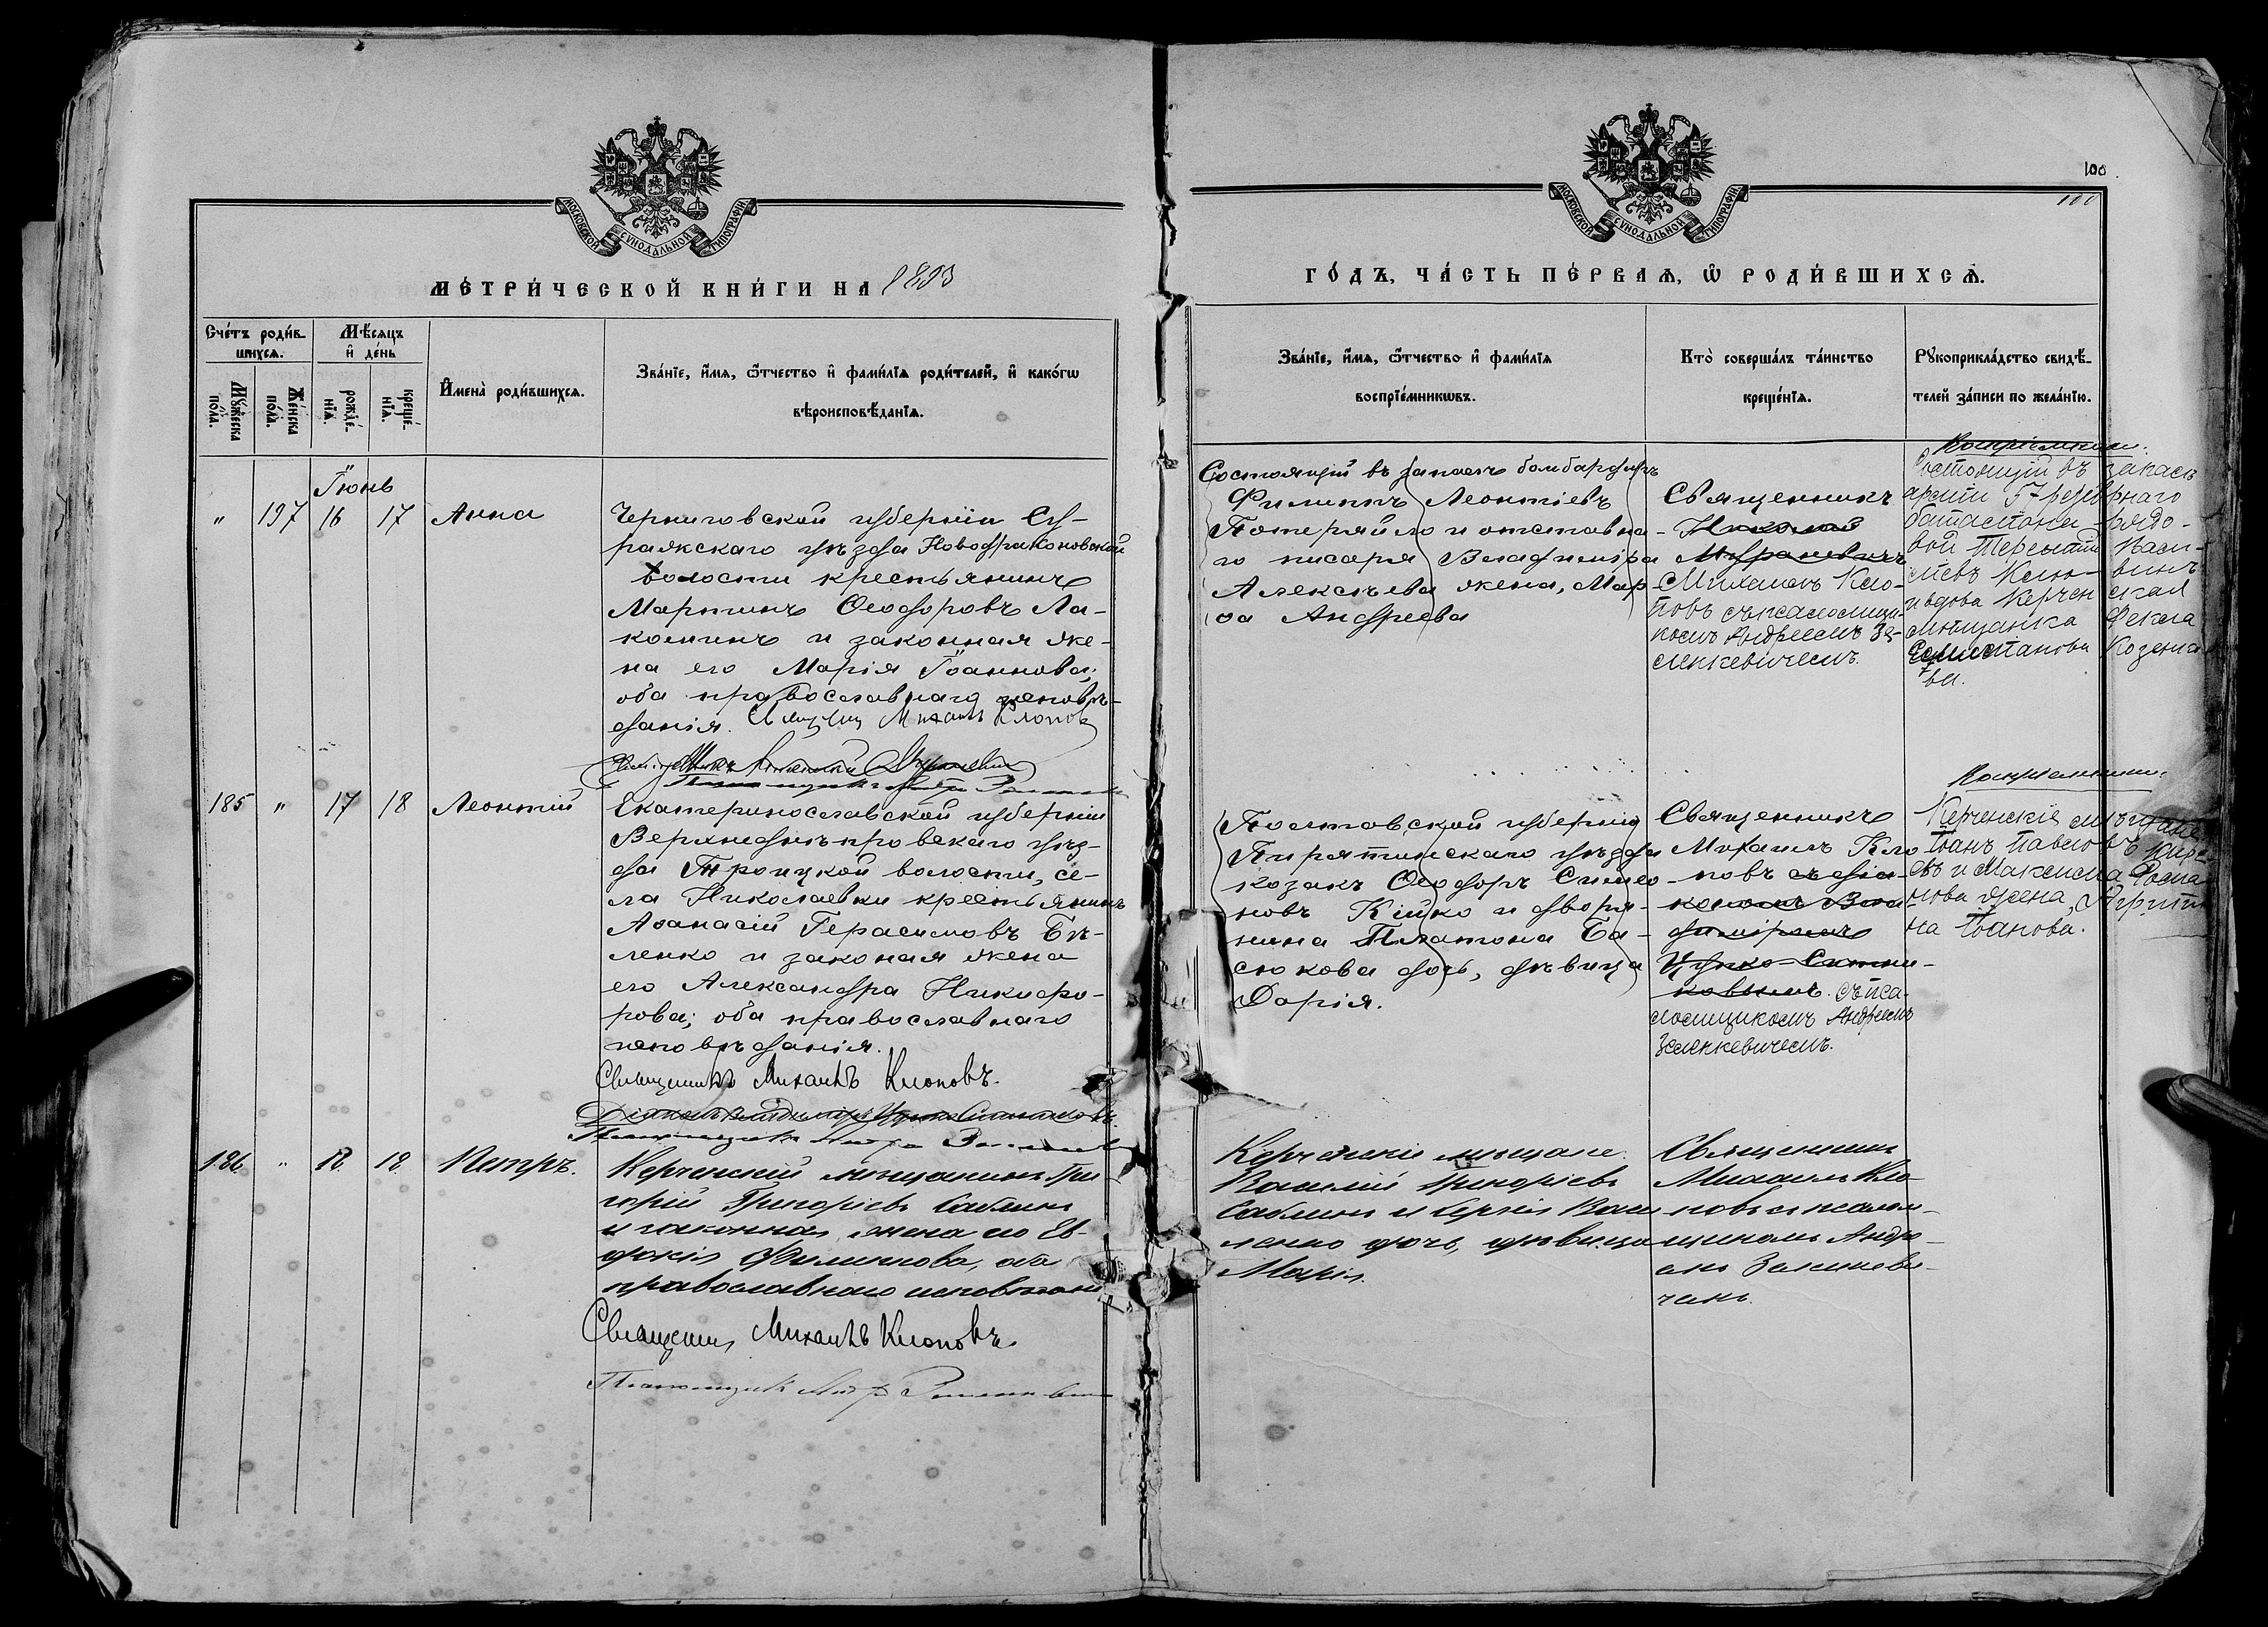 МОСКОВСКОЙ СУНОДАЛЬНОЙ ТИПОГРАФІИ
МЕ́ТРИ́ЧЕСКОЙ КНИ́ГИ НА 1893
Сче́тъ роди́в-
шихсѧ.
Мѣ́сѧцъ
и҆ де́нь
Мꙋ́жеска
по́ла.
Же́нска
по́ла.
рожде́-
нїѧ.
креще́-
нїѧ.
И҆мена̀ роди́вшихсѧ.
Зва́нїе, и҆́мѧ, ѻ҆́тчество и҆ фами́лїѧ роди́телей, и҆ како́гѡ
вѣроисповѣ́данїѧ.
Іюнь
" 197 16 17 Анна
Черниговской губерніи Су-
ражскаго уѣзда Новодраконовской
волости крестьянинъ
Мартинъ Ѳеодоровъ Ла-
коминъ и законная же-
на его Марія Іоаннова;
оба православнаго исповѣ-
данія. Священ Михаилъ Клоповъ
185 " 17 18 Леонтій
Екатеринославской губерніи
Верхнеднѣпровскаго уѣз-
да Троицкой волости, се-
ла Николаевки крестьянинъ
Аѳанасій Герасимовъ Бѣ-
ленко и законая жена
его Александра Никифо-
рова; оба православнаго
исповѣданія.
Священникъ Михаилъ Клоповъ.
Діаконъ Владиміръ Ситниковъ.
186 " 18 18 Петръ.
Керченскій мѣщанинъ Гри
горій Григорьевъ Саблинъ
и законная жена его Ев-
докія Филиппова, оба
православнаго исповѣдані
Священн Михаилъ Клоповъ
МОСКОВСКОЙ СУНОДАЛЬНОЙ ТИПОГРАФІИ
100
100
ГО́ДЪ, ЧА́СТЬ ПЕ́РВАѦ, Ѡ҆ РОДИ́ВШИХСѦ.
Зва́нїе, и҆́мѧ, ѻ҆́тчество и҆ фами́лїѧ
воспрїе́мникѡвъ.
Кто̀ соверша́лъ та́инство
креще́нїѧ.
Рꙋкоприкла́дство свидѣ́-
телей за́писи по жела́нїю.
Состоящій въ запасѣ бомбардиръ
Филиппъ Леонтіевъ
Потеряйло и отставна-
го писаря Владиміра
Алексѣева жена, Мар-
ѳа Андреева
Священникъ
Николай
Михаилъ Кло-
повъ съ псаломщи-
комъ Андреемъ Зе-
ленкевичемъ.
Воспріемники:
Состоящій въ запасѣ
арміи 57 резервнаго
баталіона рядо-
вой Терентій Васи-
и вдова Керчен ская
мѣщанка Ѳекла
Полтовской губерніи
Пирятинскаго уѣзда
козакъ Ѳеодоръ Симео-
новъ Кійко и дворя-
нина Платона Ба-
сюкова дочь, дѣвица
Дарія.
Священникъ
Михаилъ Кло
повъ съ діа-
кономъ Вла-
диміромъ
Ситни-
ковымъ. съ пса-
ломщикомъ Андреемъ
Зеленкевичемъ.
Воспріемники:
Керченскіе мѣщане
Іоанъ Павловъ
и Максима Рома
нова жена,
на Іванова.
Керченскіе мѣщане
Василій Григорьевъ
Саблинъ и Сергія Васи
ленко дочь, дѣвица
Марія.
Священникъ
Михаилъ Кло-
повъ съ псалом-
щикомъ Андре-
емъ Зеленкеви-
чемъ.